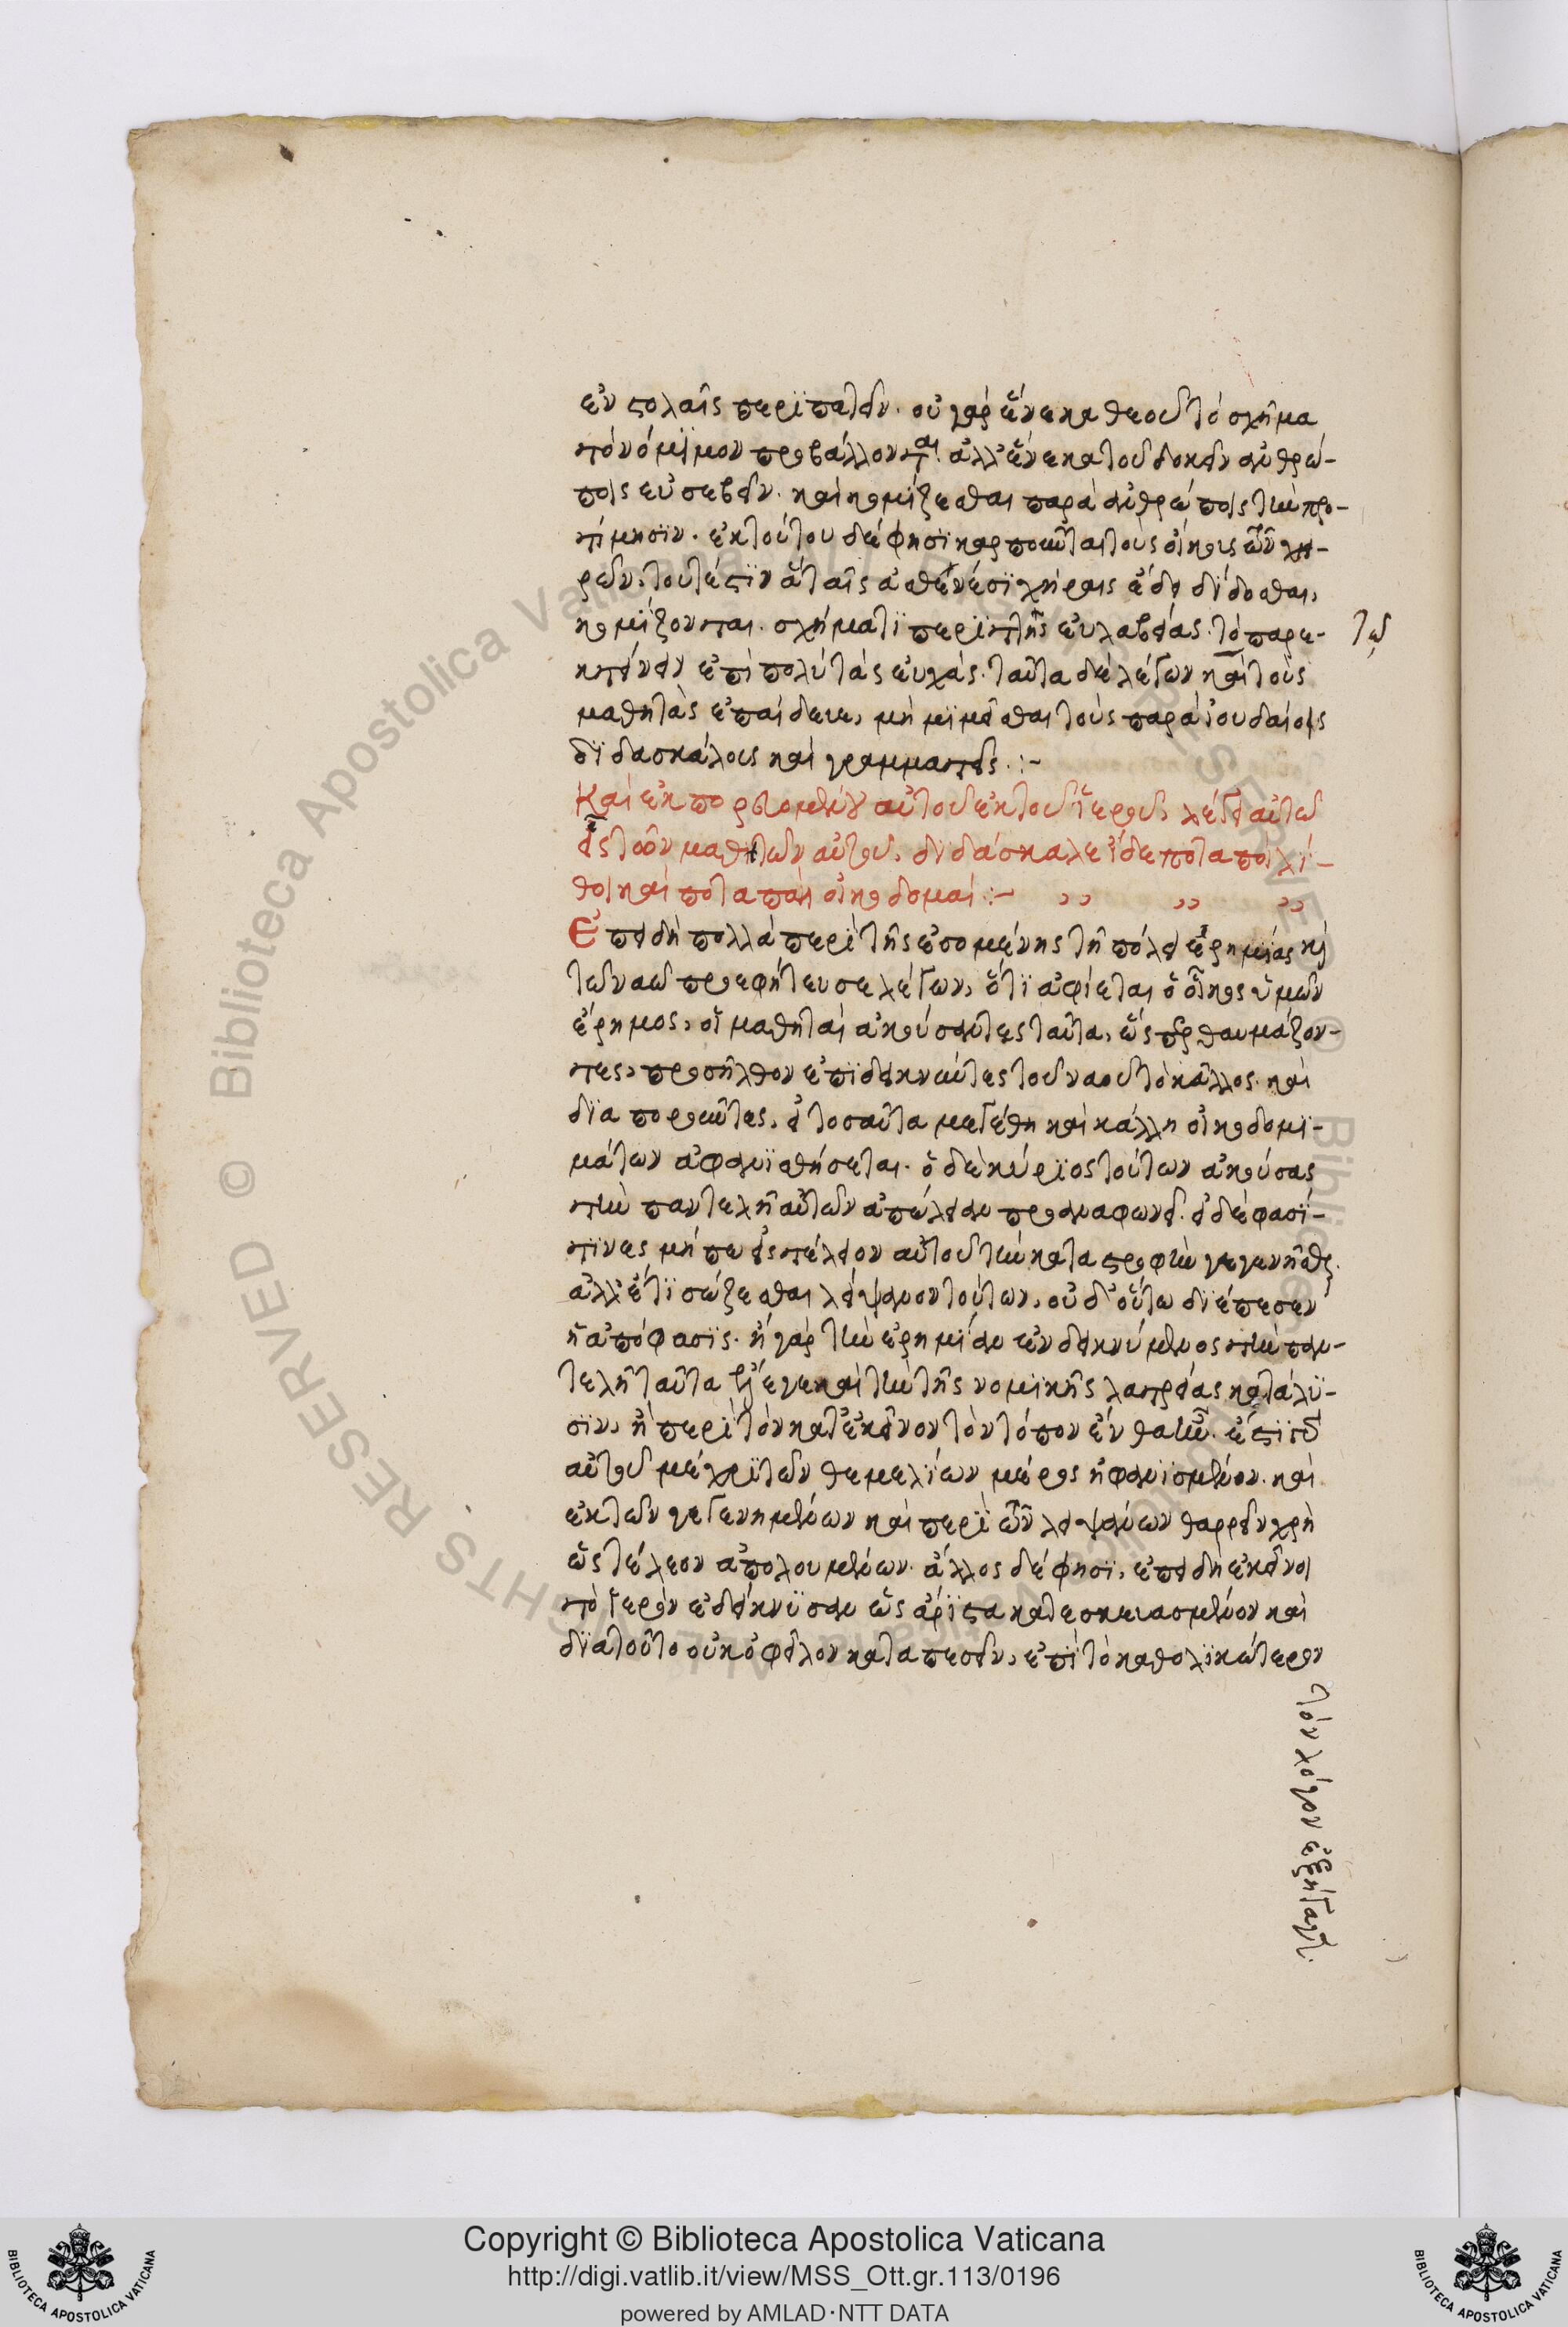 ἐν στολαῖς περιπατεῖν. οὐ γὰρ ἕνεκα θεοῦ τὸ σχῆμα
τὸ νόμιμον προβάλλονται. ἀλλ' ἕνεκα τοῦ δοκεῖν ἀνθρώ-
ποις εὐσεβεῖν. καὶ κομίζεσθαι παρὰ ἀνθρώποις τὴν προ-
τίμησιν. ἐκ τούτου δέ φησι καρποῦνται τοὺς οἴκους τῶν χη-
ρῶν, τουτέστιν ἃ ταῖς ἀσθενέσι χήραις ἔδει δίδοσθαι,
κομίζονται. σχήματι περιττῆς εὐλαβείας. τὸ παρε-
τῶ
κτείνειν ἐπὶ πολὺ τὰς εὐχάς. ταῦτα δὲ λέγων καὶ τοὺς
μαθητὰς ἐπαίδευε, μὴ μιμεῖσθαι τοὺς παρὰ ἰουδαίοις
διδασκάλους καὶ γραμματεῖς. :-
Καὶ ἐκπορευομένου αὐτοῦ ἐκ τοῦ ἱεροῦ, λέγει αὐτῶ
εἷς τῶν μαθητῶν αὐτοῦ, διδάσκαλε ἴδε ποταποὶ λί-
θοι καὶ ποταπαὶ οἰκοδομαί :- ,, ,, ,,
Ἐπειδὴ πολλὰ περὶ τῆς ἐσομένης τῆ πόλει ἐρημίας καὶ
τῶ ναῶ προεφήτευσε λέγων, ὅτι ἀφίεται ὁ οἶκος ὑμῶν
ἔρημος, οἱ μαθηταὶ ἀκούσαντες ταῦτα, ὥσπερ θαυμάζον-
τες, προσῆλθον ἐπιδεικνῦντες τοῦ ναοῦ τὸ κάλλος. καὶ
διαποροῦντες, εἰ τοσαῦτα μεγέθη καὶ κάλλη οἰκοδομη-
μάτων ἀφανισθήσεται. ὁ δὲ κύριος τούτων ἀκούσας
τὴν παντελῆ αὐτῶν ἀπώλειαν προαναφωνεῖ. εἰ δέ φασί
τινες μήπω εἰς τέλειον αὐτοῦ τὴν καταστροφὴν γεγενῆσθαι.
ἀλλ' ἔτι σώζεσθαι λείψανον τούτων, οὐδ' οὕτω διέπεσεν
ἡ ἀπόφασις. ἢ γὰρ τὴν ἐρημίαν ἐνδεικνύμενος τὴν παν-
τελῆ ταῦτα ἔλεγε καὶ τὴν τῆς νομικῆς λατρείας κατάλυ-
σιν, ἢ περὶ τὸν κατ' ἐκεῖνον τὸν τόπον ἔνθα ἦν. ἔστι τὸ
αὐτοῦ μέχρι τῶν θεμελίων μέρος ἠφανισμένον. καὶ
ἐκ τῶν γεγενημένων καὶ περὶ τῶν λειψάνων θαρρεῖν χρὴ
ὡς τέλεον ἀπολουμένων. ἄλλος δέ φησι, ἐπειδὴ ἐκεῖνοι
τὸ ἱερὸν ἐδείκνυσαν ὡς ἄριστα κατεσκευασμένον καὶ
διατοῦτο οὐκ ὀφεῖλον καταπεσεῖν, ἐπὶ τὸ καθολικώτερον
τὸν λόγον ἐξήγαγε.
Copyright © Biblioteca Apostolica Vaticana
http://digi.vatlib.it/view/MSS_Ott.gr.113/0196
powered by AMLAD·NTT DATA
BIBLIOTECA APOSTOLICA VATICANA
BIBLIOTECA APOSTOLICA VATICANA